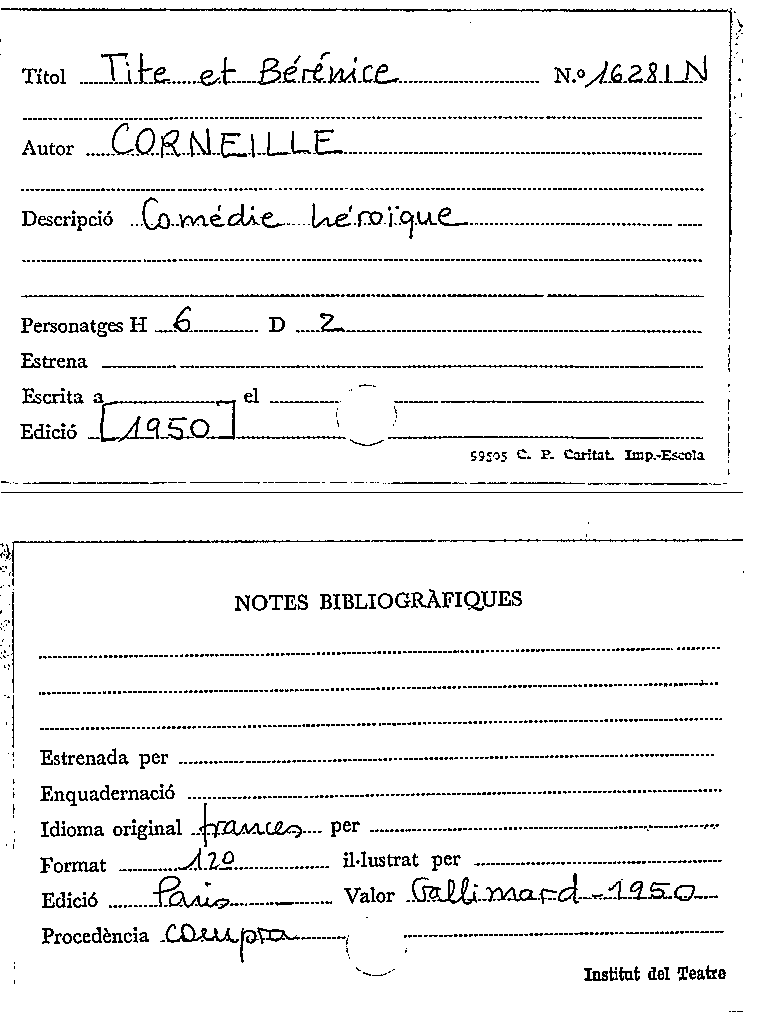 Títol Tite et Bérénice N.º 16281 N
Autor CORNEILLE
Descripció Comédie héroïque
Personatges H 6 D 2
Estrena
Escrita a el
Edició [1950]
59505 C. P. Caritat. Imp.-Escola
NOTES BIBLIOGRÀFIQUES
Estrenada per
Enquadernació
Idioma original frances per
Format 12º il·lustrat per
Edició Paris Valor Gallimard-1950
Procedència compra
Institut del Teatre